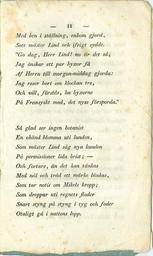 — 11 —
Med ben i ställning, enkom gjord,
Sott mäster Lind och ifrigt sydde.
"Go dag, Herr Lind! nu är det så,
Jag önskar ett par byxor få
Af Herrn till morgon-middag gjorda:
Jag reser bort om klockan tre,
Och vill, förstås, ha byxorne
På Fransyskt mod, det nyss försporda."
Så glad ser ingen botanist
En okänd blomma uti lunden,
Som mäster Lind såg nya kunden
På permissioner lida brist; —
Och fortare, än det kan tänkas
Med nål och tråd ett märke blänkas,
Som tar notis om Mikels kropp;
Som droppar uti regnets floder
Snart styng på styng i tyg och foder
Otaligt gå i nattens lopp.